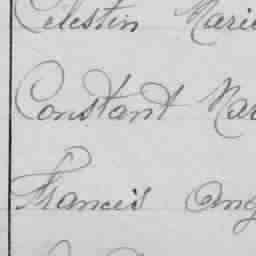 Célestin Marie
Constant Mar
Francis Ang